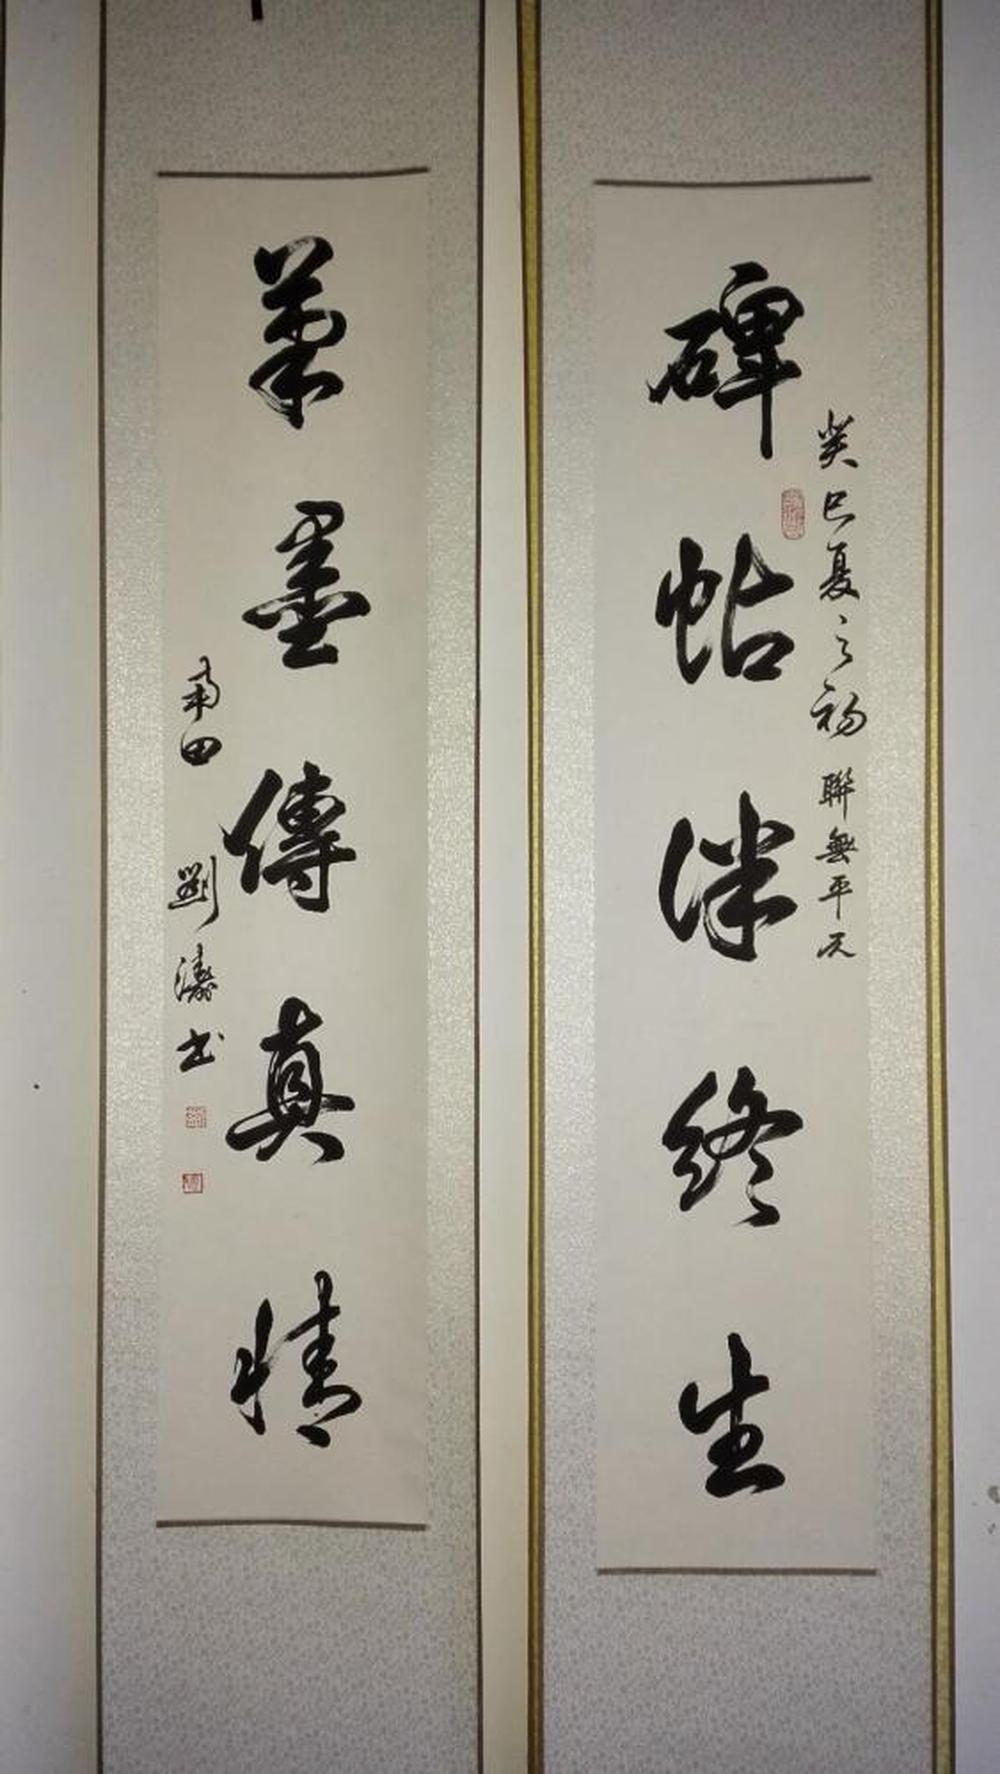 碑帖伴終生
癸巳夏之初 聯無平仄
筆墨傳真情
甫田 劉濤書